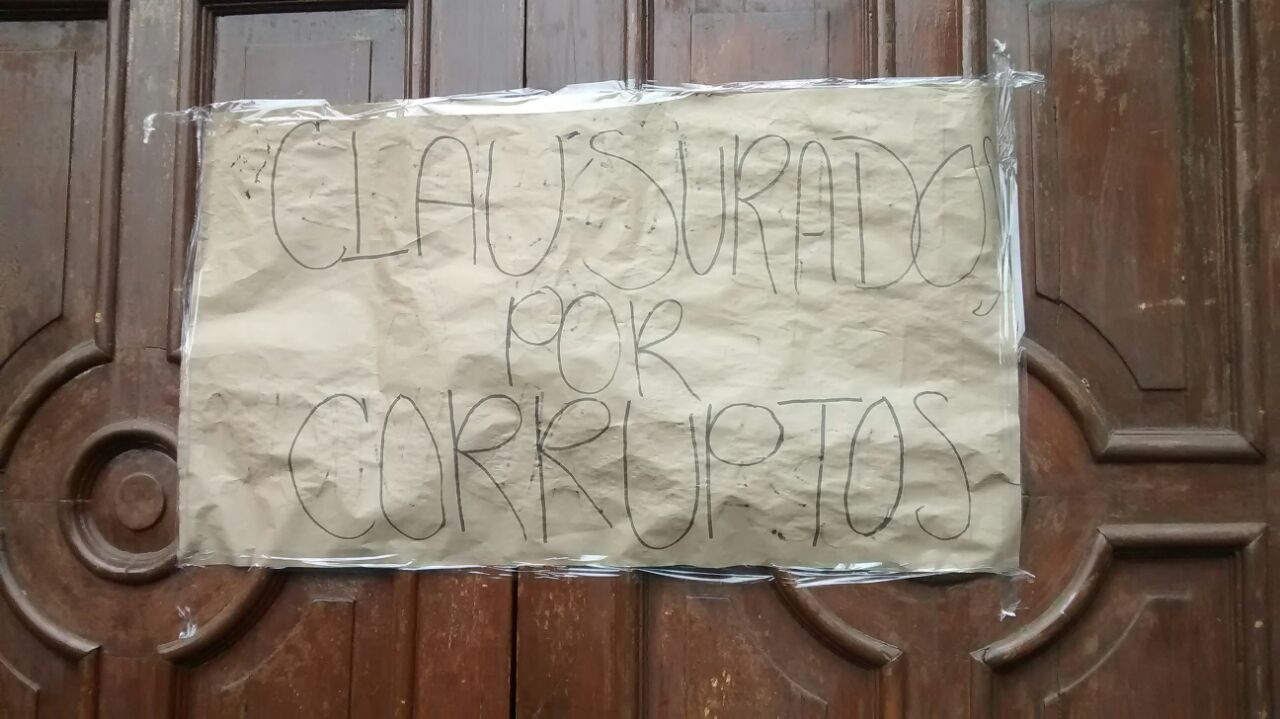 CLAUSURADO,
POR
CORRUPTOS